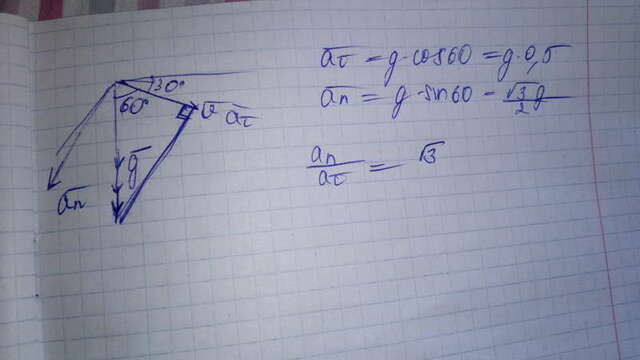 30°
60°
υ a̅τ
g̅
a̅n
a̅τ = g·cos60 = g·0,5
a̅n = g·sin60 = √3/2 g
an/aτ = √3